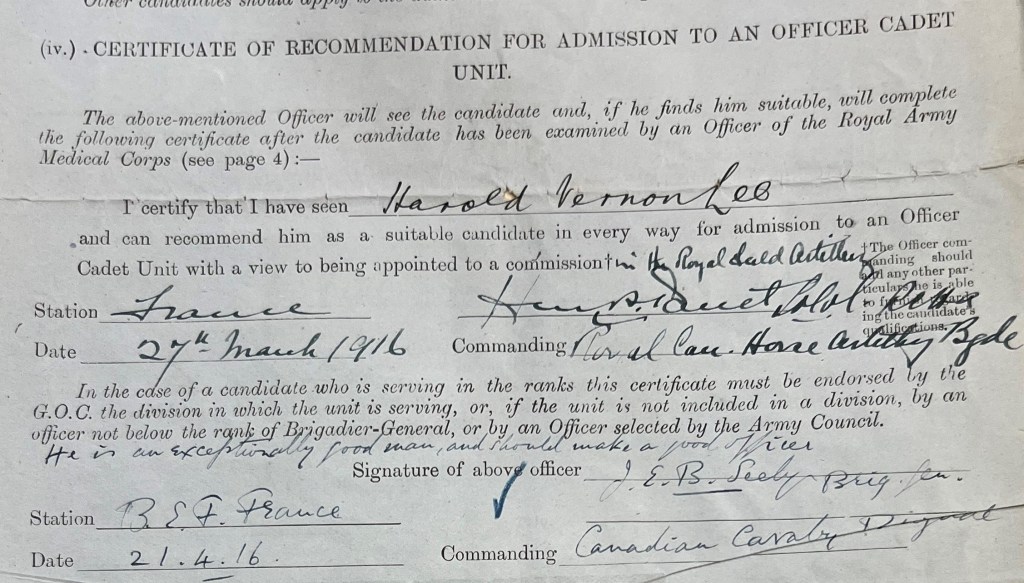 Other candidates should apply to the
(iv.) . CERTIFICATE OF RECOMMENDATION FOR ADMISSION TO AN OFFICER CADET
UNIT.
The above-mentioned Officer will see the candidate and, if he finds him suitable, will complete
the following certificate after the candidate has been examined by an Officer of the Royal Army
Medical Corps (see page 4) :—
I certify that I have seen Harold Vernon Lee
and can recommend him as a suitable candidate in every way for admission to an Officer
Cadet Unit with a view to being appointed to a commission† in the Royal Field Artillery
†The Officer com-
manding should
add any other par-
ticulars he is able
to regard-
ing the candidate's
qualifications.
Station France
Date 27th March 1916 Commanding Royal Can. Horse Artillery Bgde
In the case of a candidate who is serving in the ranks this certificate must be endorsed by the
G.O.C. the division in which the unit is serving, or, if the unit is not included in a division, by an
officer not below the rank of Brigadier-General, or by an Officer selected by the Army Council.
He is an exceptionally good man, and should make a good officer
Signature of above officer J. E. B. Seely Brig. Gen.
Station B E F. France
Date 21.4.16. Commanding Canadian Cavalry Brigade